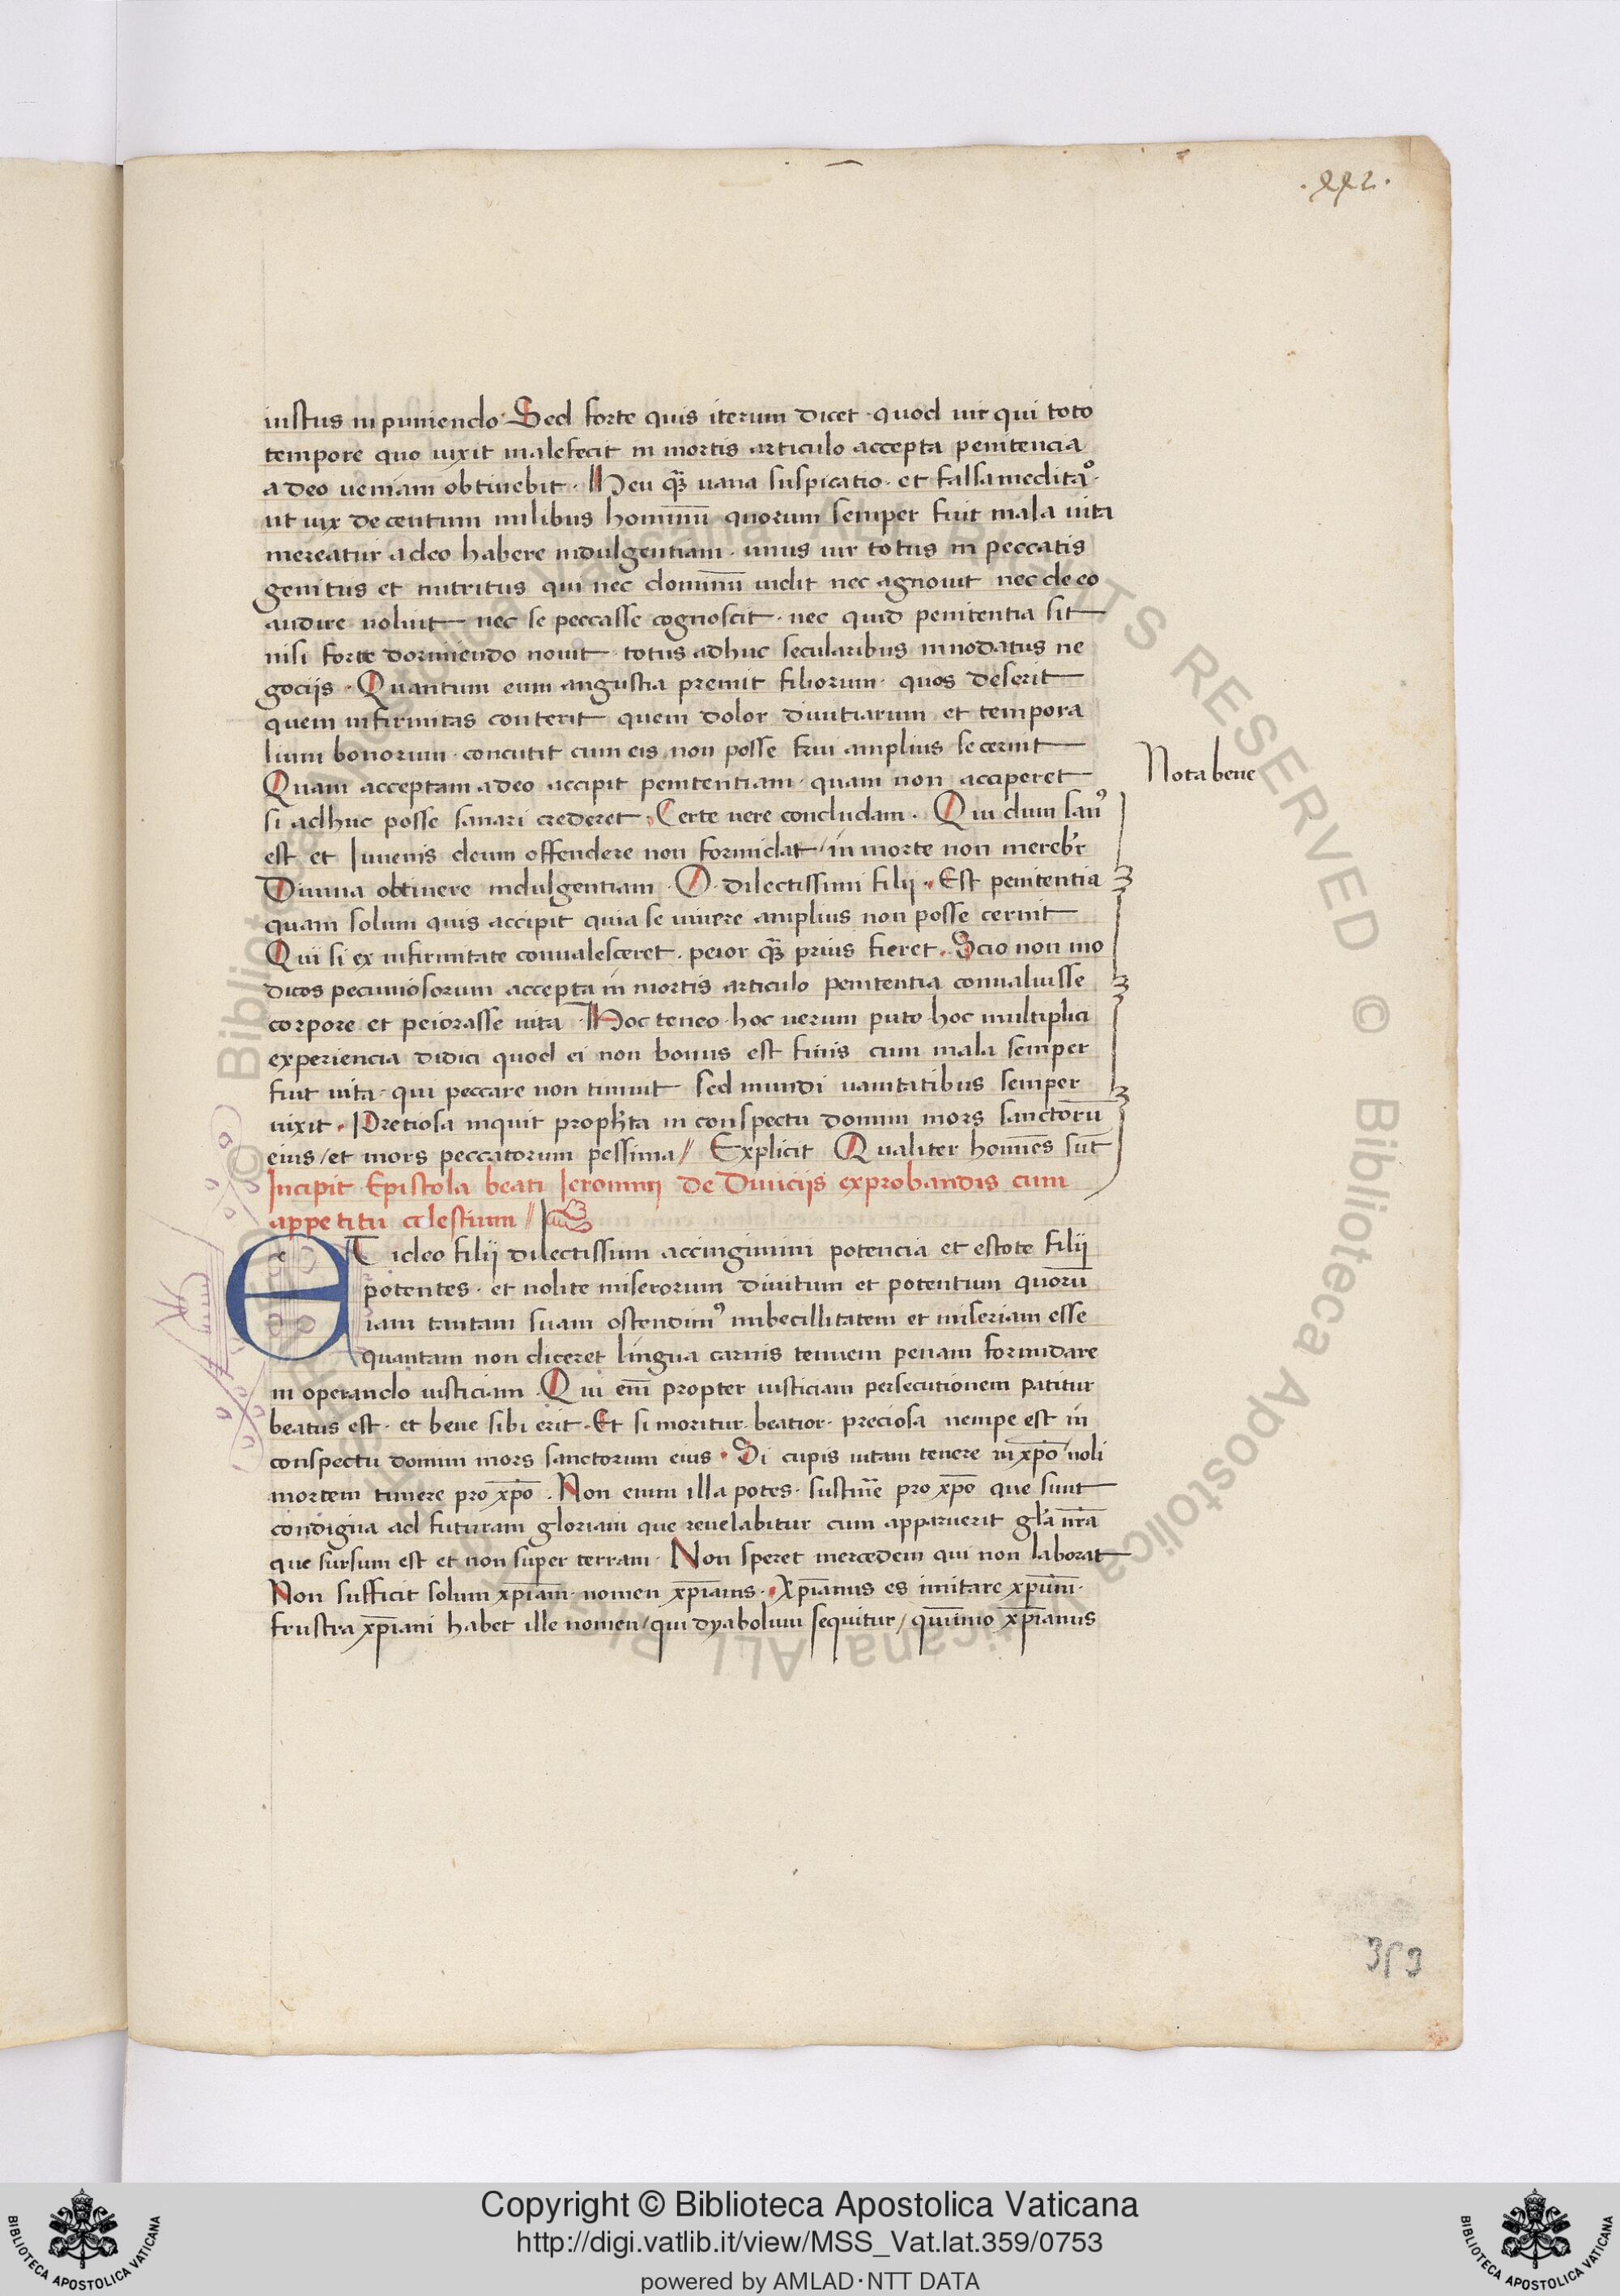 .222.
iustus in puniendo Sed forte quis iterum dicet · quod uir qui toto
tempore quo uixit malefecit in mortis articulo accepta penitencia
a deo ueniam obtinebit · Heu qȝ uana suspicatio · et falsa meditaº ·
ut uix de centum milibus hominū quorum semper fuit mala uita
mereatur a deo habere indulgentiam · unus uir totus in peccatis
genitus et nutritus qui nec dominū uidit nec agnouit nec de eo
audire uoluit nec se peccasse cognoscit · nec quid penitentia sit
nisi forte dormiendo nouit · totus adhuc secularibus innodatus ne
gociis · Quantum eum angustia premit filiorum · quos deserit
quem infirmitas conterit quem dolor diuitiarum et tempora
lium bonorum · concutit cum eis non posse frui amplius se cernit
Quam acceptam a deo accipit penitentiam · quam non acciperet
si adhuc posse sanari crederet · Certe uere concludam · Qui dum sanꝰ
est et Iuuenis deum offendere non formidat / in morte non merebr̄
Diuina obtinere indulgentiam · O · dilectissimi filii · Est penitentia
quam solum quis accipit quia se uiuere amplius non posse cernit
Qui si ex infirmitate conualesceret · peior qȝ prius fieret · Scio non mo
dicos pecuniosorum accepta in mortis articulo penitentia conualuisse
corpore et peiorasse uita · Hoc teneo · hoc uerum puto hoc multiplici
experiencia didici quod ei non bonus est finis cum mala semper
fuit uita · qui peccare non timuit sed mundi uanitatibus semper
uixit · Pretiosa inquit proph̄ta in conspectu domini mors sanctorū
eius / et mors peccatorum pessima // Explicit Qualiter homēs sūt
Incipit Epistola beati Ieronimi de Diuiciis exprobandis cum
appetitu celestium //
ET ideo filii dilectissimi accingimini potencia et estote filii
potentes · et nolite miserorum diuitum et potentum quorū
iam tantam suam ostendimꝰ imbecillitatem et miseriam esse
quantam non diceret lingua carnis tenuem penam formidare
in operando iusticiam · Qui em̄ propter iusticiam persecutionem patitur
beatus est · et bene sibi erit · Et si moritur beatior · preciosa nempe est in
conspectu domini mors sanctorum eius · Si cupis uitam tenere in xp̄o / noli
mortem timere pro xp̄o · Non enim illa potes · sustinē pro xp̄o que sunt
condigna ad futuram gloriam que reuelabitur cum apparuerit gl̄a nr̄a
que sursum est et non super terram · Non speret mercedem qui non laborat
Non sufficit solum xp̄iam · nomen xp̄ianis · Xp̄ianus es imitare xp̄um ·
frustra xp̄iani habet ille nomen / qui dyabolum sequitur / quīimo xp̄ianus
Nota bene
Copyright © Biblioteca Apostolica Vaticana
http://digi.vatlib.it/view/MSS_Vat.lat.359/0753
powered by AMLAD·NTT DATA
BIBLIOTECA APOSTOLICA VATICANA
BIBLIOTECA APOSTOLICA VATICANA